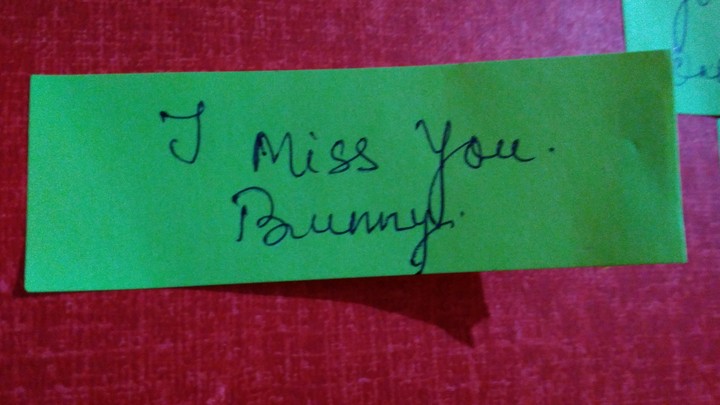 I Miss You.
Bunny.